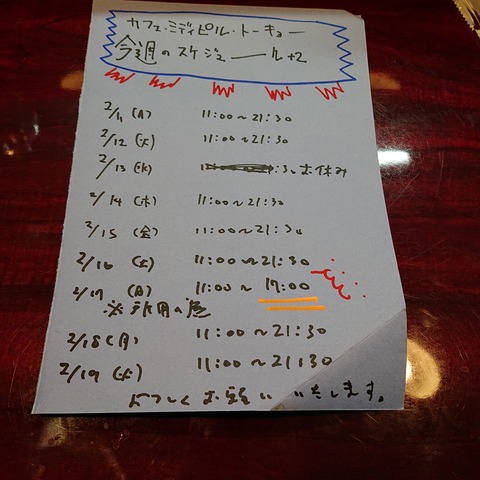 カフェ・ミディピル・トーキョー
今週のスケジュール+2
2/11 (月) 11:00~21:30
2/12 (火) 11:00~21:30
2/13 (水) :30 お休み
2/14 (木) 11:00~21:30
2/15 (金) 11:00~21:30
2/16 (土) 11:00~21:30
2/17 (日) 11:00~17:00
※
2/18 (月) 11:00~21:30
2/19 (火) 11:00~21:30
よろしくお願いいたします。